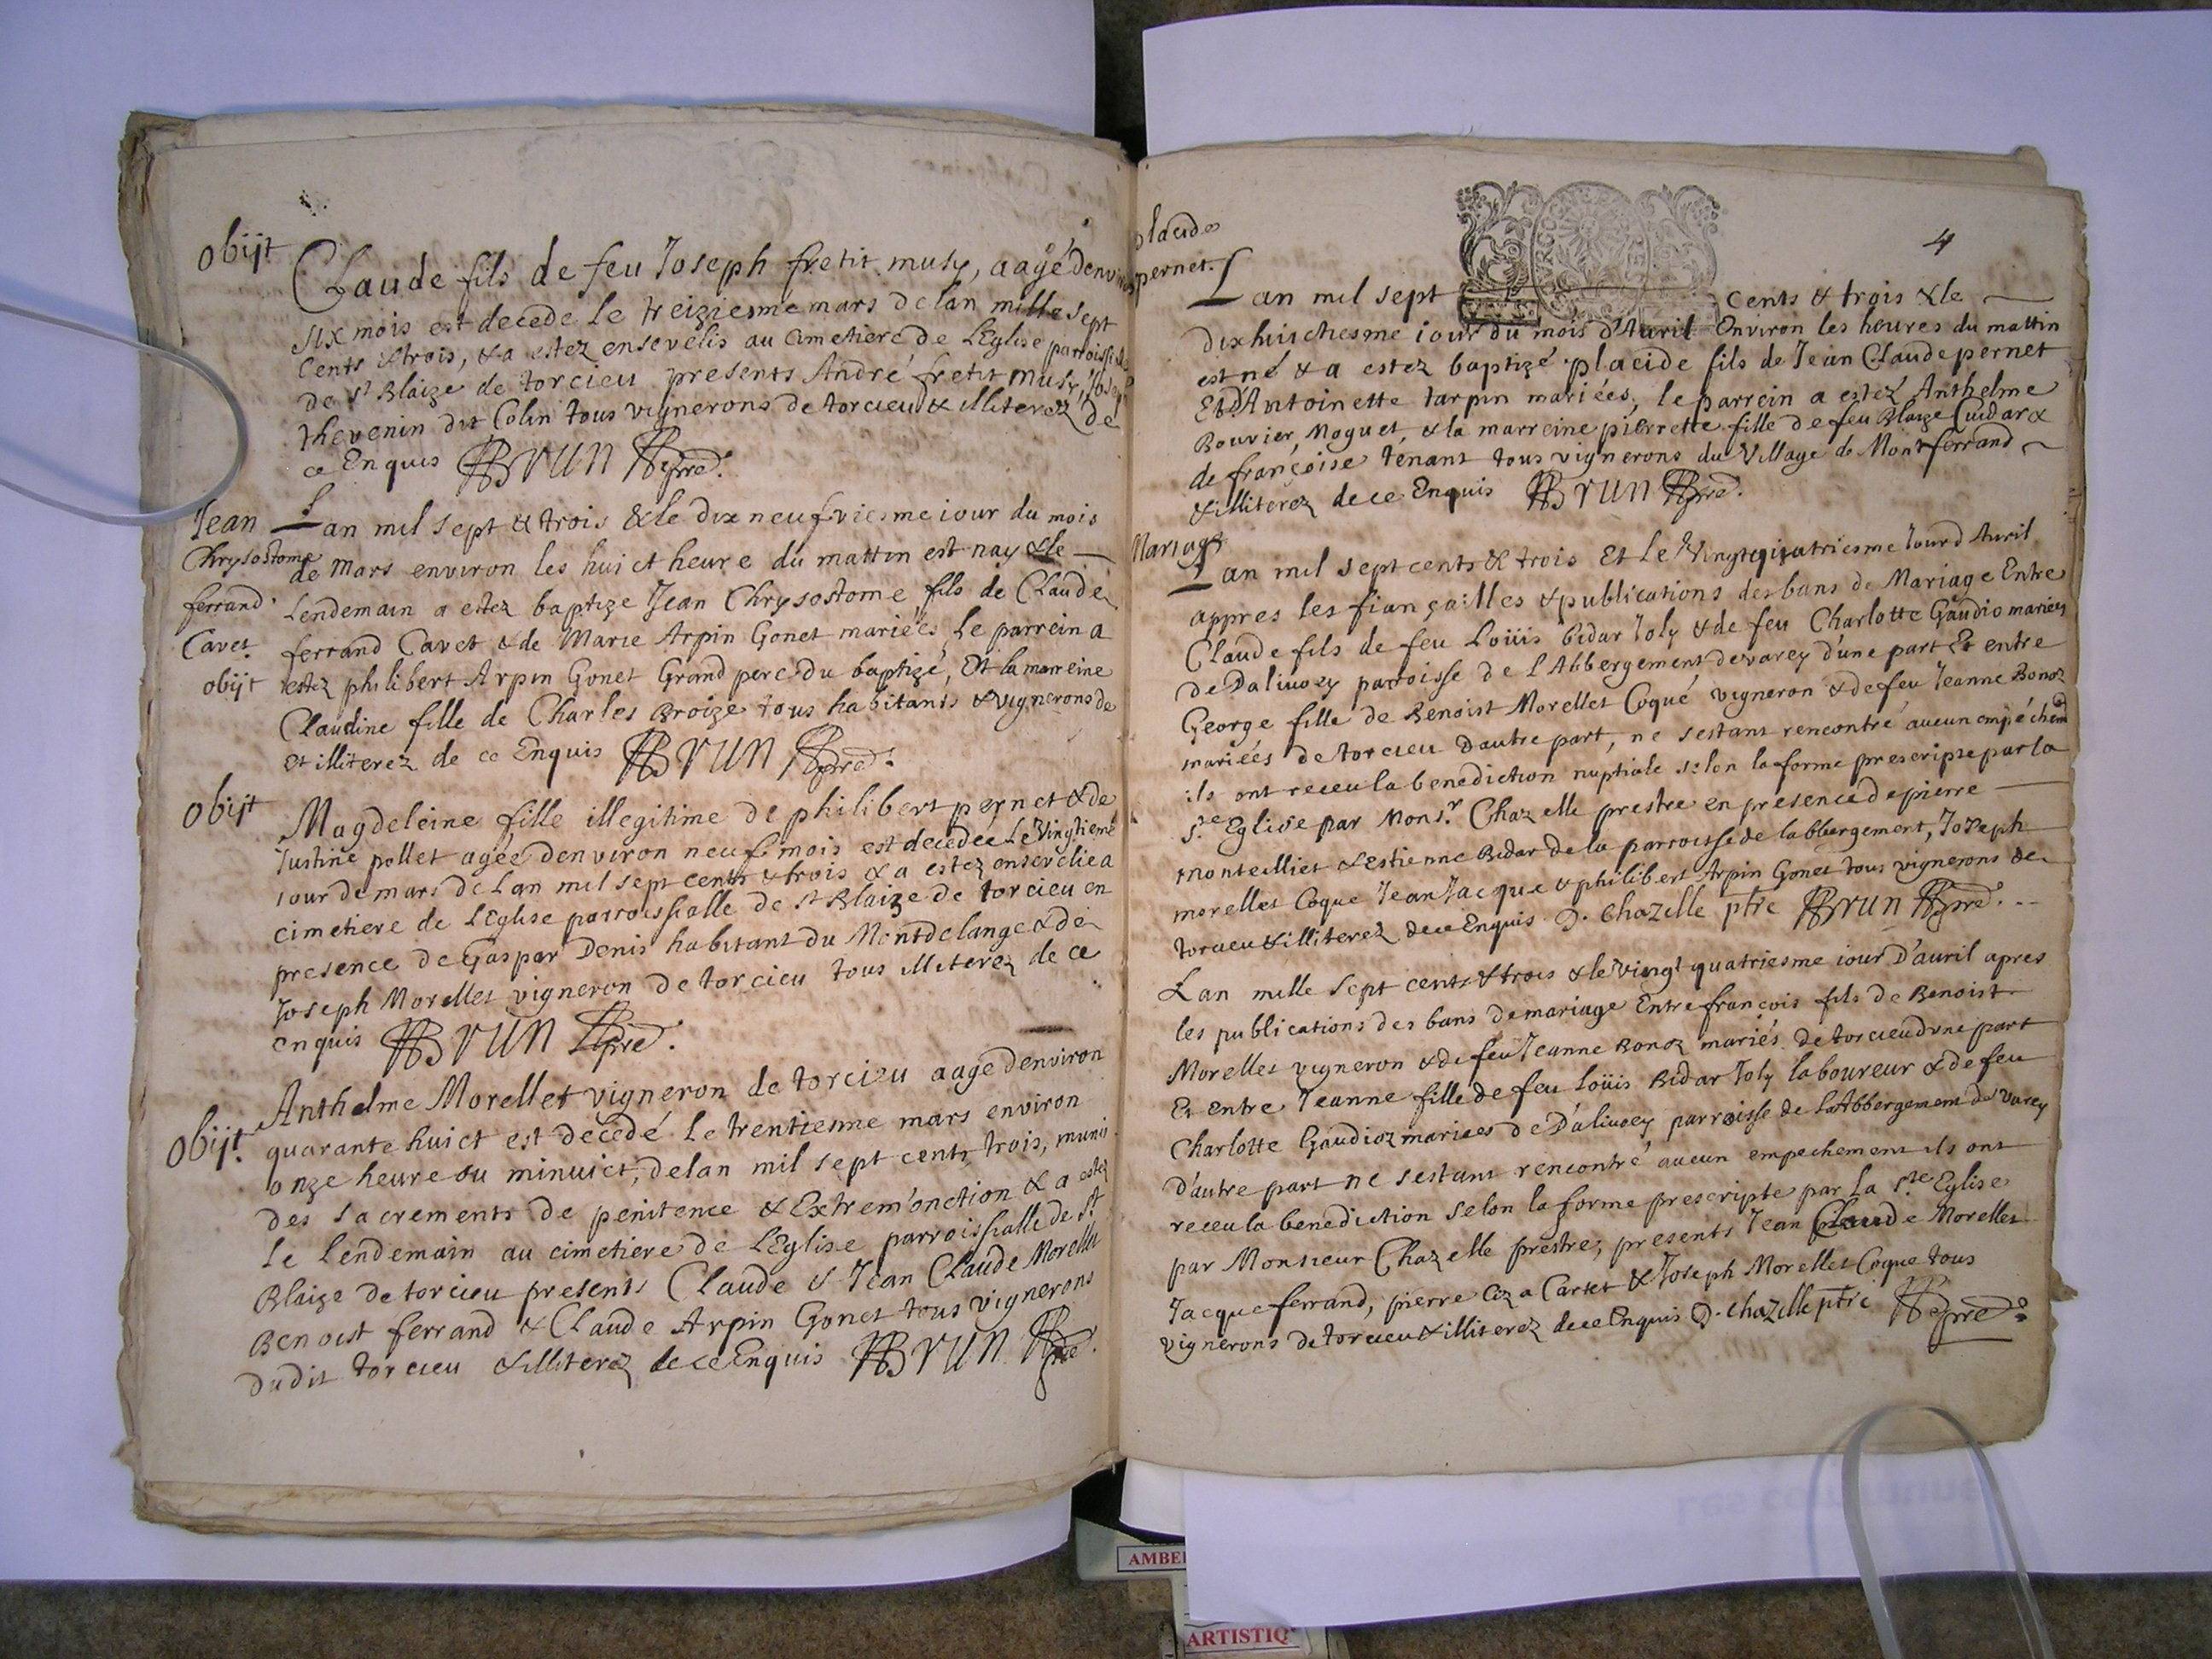 obijt
Claude fils de feu Joseph fretit musy, aagé denviron
six mois est decede le treiziesme mars de lan mille sept
cents & trois, & a estez ensevelis au cimetiere de LEglise parroissialle
de st Blaize de torcieu presents André fretit musy, Joseph
thevenin dit Colin tous vignerons de torcieu & illiterez de
ce Enquis BRUN
Jean
Chrysostome
ferrand
Cavet
obijt
Lan mil sept & trois & le dix neufviesme iour du mois
de Mars environ les huict heure du mattin est nay & le
Lendemain a estez baptize Jean Chrysostome fils de Claude
ferrand Cavet & de Marie Arpin Gonet mariées Le parrein a
estez philibert Arpin Gonet Grand pere du baptizé, Et la marreine
Claudine fille de Charles Broize tous habitants & vignerons de
et illiterez de ce Enquis BRUN
obijt
Magdeleine fille illegitime de philibert pernet & de
Justine pollet agée denviron neuf mois est decedee Le Vingtieme
iour de mars de Lan mil sept cents & trois & a estez ensevelie a
cimetiere de LEglise parroissialle de st Blaize de torcieu en
presence de Gaspar Denis habitant du Montdelange & de
Joseph Morellet vigneron de torcieu tous illiterez de ce
enquis BRUN
Obijt.
Anthelme Morellet vigneron de torcieu aagé denviron
quarante huict est decedé Le trentienne mars environ
onze heure ou minuict, de lan mil sept cents trois, munis
des sacrements de penitence & Extrem'onction & a estez
le lendemain au cimetiere de LEglise parroissialle de st
Blaize de torcieu presents Claude & Jean Claude Morellet
Benoist ferrand & Claude Arpin Gonet tous vignerons
dudit torcieu & illiterez de ce Enquis BRUN
4
placide
pernet.
Lan mil sept cents & trois & le
dixhuictiesme iour du mois d'Avril Environ les heures du mattin
est né & a estez baptizé placide fils de Jean Claude pernet
Et d'Antoinette tarpin mariées, le parrein a estez Anthelme
Bouvier, Moguet, & la marreine pierrette fille de feu Blaize Cuidar &
de françoise tenant tous vignerons du Village de Montferrand
& illiterez de ce Enquis BRUN
Mariage
Lan mil sept cents & trois Et Le Vingtquatriesme Jour d'Avril
appres les fiançailles & publications des bans de Mariage Entre
Claude fils de feu Loüis bidar Joly & de feu Charlotte Gaudio mariées
de Dalivoey parroisse de L'Abbergement de varey d'une part Et entre
George fille de Benoist Morellet Coqué vigneron & de feu Jeanne Bonoz
mariées de torcieu dautre part, ne sestant rencontré aucun empéchem
ils ont receu la benediction nuptiale selon la forme prescripte par la
s.te Eglise par Mons.r Chazelle prestre en presence de pierre
monteilliet & estienne Bidar de la parroisse de labbergement, Joseph
morellet Coque Jean Jacque & philibert Arpin Gonet tous vignerons de
torcieu & illiterez de ce Enquis D. Chazelle ptre BRUN
Lan mille sept cents & trois & le vingt quatriesme iour D'auril apres
les publications des bans de mariage Entre françois fils de Benoist
Morellet vigneron & de feu Jeanne Bonoz mariés de torcieu dune part
Et entre Jeanne fille de feu Loüis Bidar Joly laboureur & de feu
Charlotte Gaudioz mariees de Dalivoey parroisse de LAbbergement de varey
d'autre part ne sestant rencontré aucun empechement ils ont
receu la benediction selon la forme prescripte par la s.te Eglise
par Monsieur Chazelle prestre, presents Jean Claude Morellet
Jacque ferrand, pierre Coza Cartet & Joseph Morellet Coque tous
vignerons de torcieu & illiterez de ce Enquis D. Chazelle ptre
AMBE
ARTISTIQ